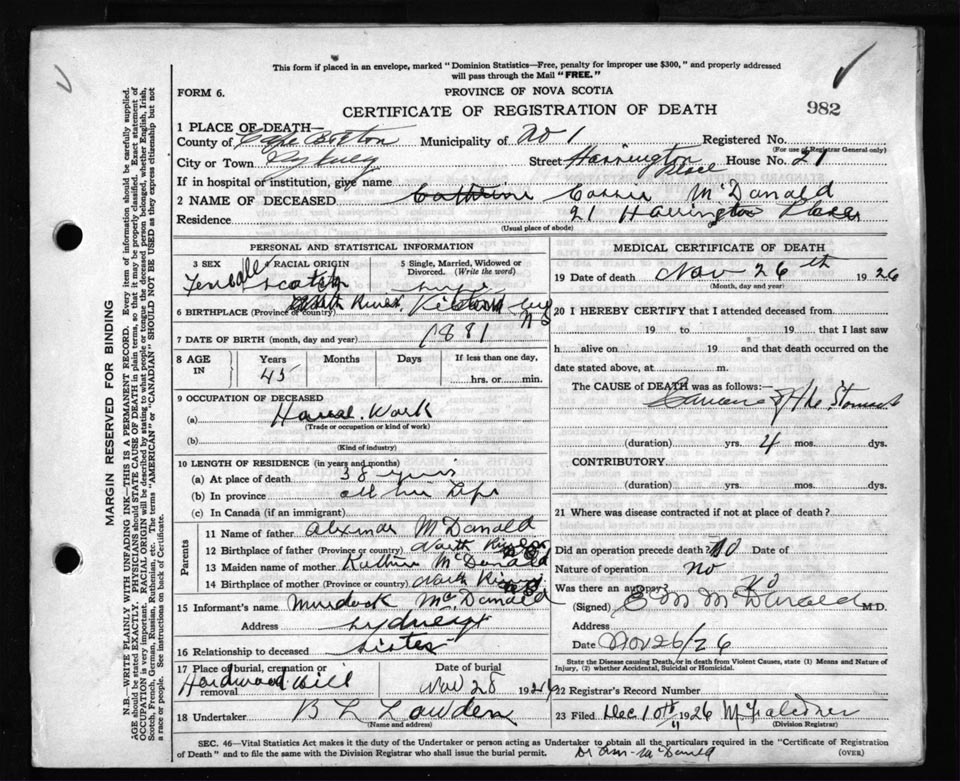 This form if placed in an envelope, marked "Dominion Statistics—Free, penalty for improper use $300," and properly addressed
will pass through the Mail "FREE."
FORM 6.
PROVINCE OF NOVA SCOTIA
CERTIFICATE OF REGISTRATION OF DEATH
982
1 PLACE OF DEATH—
County of Cape Breton Municipality of No 1 Registered No.
(For use of Registrar General only)
City or Town Sydney Street Harrington Place House No. 21
If in hospital or institution, give name
2 NAME OF DECEASED Cathrine Cassie McDonald
Residence 21 Harrington Place
(Usual place of abode)
PERSONAL AND STATISTICAL INFORMATION
3 SEX 4 RACIAL ORIGIN 5 Single, Married, Widowed or Divorced. (Write the word)
Female Scotch
6 BIRTHPLACE (Province or country) North River NS
7 DATE OF BIRTH (month, day and year) 1881
8 AGE IN Years Months Days If less than one day,
45 ......hrs. or......min.
9 OCCUPATION OF DECEASED
(a) House Work
(Trade or occupation or kind of work)
(b)
(Kind of industry)
10 LENGTH OF RESIDENCE (in years and months)
(a) At place of death 38 years
(b) In province all her life
(c) In Canada (if an immigrant)
Parents
11 Name of father Alexinder McDonald
12 Birthplace of father (Province or country) North River
13 Maiden name of mother McDonald
14 Birthplace of mother (Province or country) North River
15 Informant's name Murdock McDonald
Address Sydney
16 Relationship to deceased sister
17 Place of burial, cremation or removal Hardwood Hill Date of burial Nov 28 1926
18 Undertaker B L Lowden
(Name and address)
MEDICAL CERTIFICATE OF DEATH
19 Date of death Nov 26th 1926
(Month, day and year)
20 I HEREBY CERTIFY that I attended deceased from
19 to 19 that I last saw
h alive on 19 and that death occurred on the
date stated above, at m.
The CAUSE OF DEATH was as follows:
of the Stomach
(duration) yrs. 4 mos. dys.
CONTRIBUTORY.
(duration) yrs. mos. dys.
21 Where was disease contracted if not at place of death?
Did an operation precede death? No Date of
Nature of operation no
Was there an autopsy? No
(Signed) E M McDonald M.D.
Address
Date Nov 26/26
State the Disease causing Death, or in death from Violent Causes, state (1) Means and Nature of
Injury, (2) whether Accidental, Suicidal or Homicidal.
22 Registrar's Record Number
23 Filed Dec 10th 1926
(Division Registrar)
SEC. 46—Vital Statistics Act makes it the duty of the Undertaker or person acting as Undertaker to obtain all the particulars required in the "Certificate of Registration
of Death" and to file the same with the Division Registrar who shall issue the burial permit. McDonald (OVER)
MARGIN RESERVED FOR BINDING
N.B.—WRITE PLAINLY WITH UNFADING INK—THIS IS A PERMANENT RECORD. Every item of information should be carefully supplied.
AGE should be stated EXACTLY. PHYSICIANS should STATE CAUSE OF DEATH in plain terms, so that it may be properly classified. Exact statement of
OCCUPATION is very important. RACIAL ORIGIN will be described by stating to what people or tongue the deceased person belonged, whether English, Irish,
Scotch, French, German, Russian, Ruthenian, etc. The terms "AMERICAN" or "CANADIAN" SHOULD NOT BE USED as they express citizenship but not
a race or people. See instructions on back of Certificate.